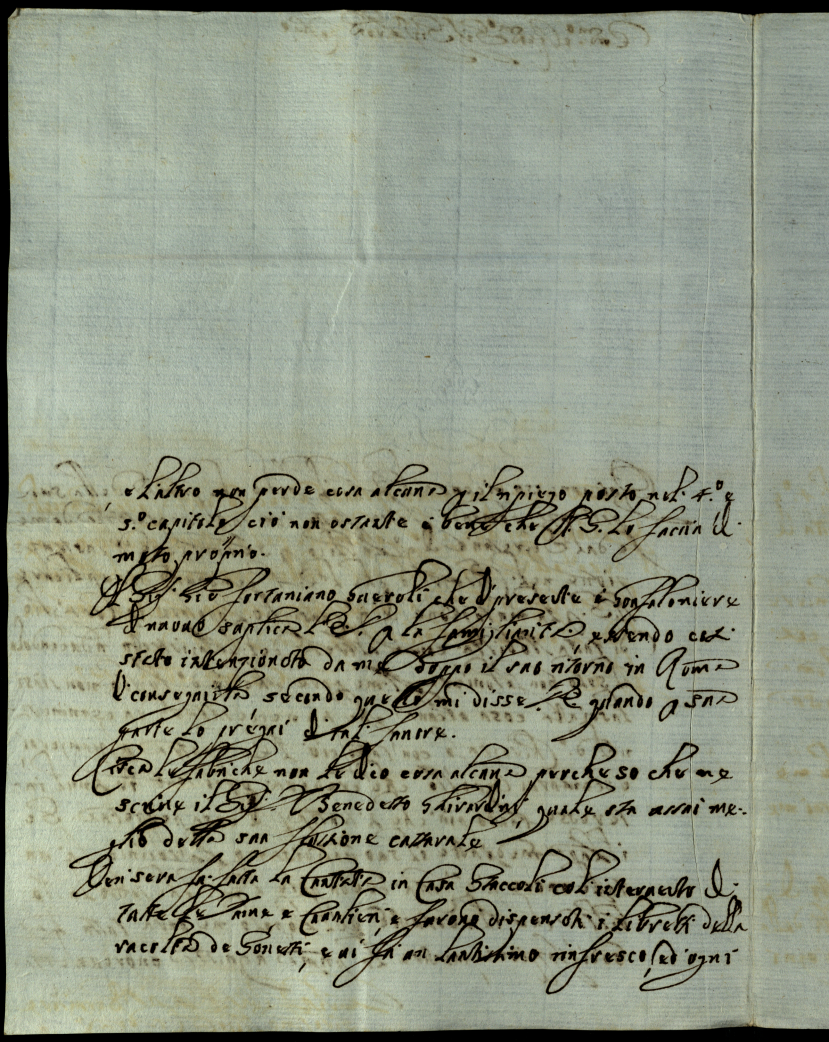 e l'altro non perde cosa alcuna p il ripiego posto nel 4.º e
5.º capitolo, ciò non ostante è bene che V. S. lo faccia di
moto proprio.
Il Sig.r Gio Fortuniano che di presente è Gonfaloniere
di nuovo suplica V. S. p la famigliarità, essendo così
stato intenzionato da me dopo il suo ritorno in Roma
di conseguirla, secondo quello mi disse quando p sua
parte lo pregai di tal favore.
Circa le fabriche non le dico cosa alcuna perche so che ne
scrive il Sig.r Benedetto quale sta assai me-
glio della sua flussione catarale
Ieri sera fu fatta la Cantata in Casa Staccoli col' intervento di
tutte le Dame e Cavalieri, e furono dispensati i libretti della
racolta de Sonetti, e vi fù un lautissimo rinfresco, ed ogni